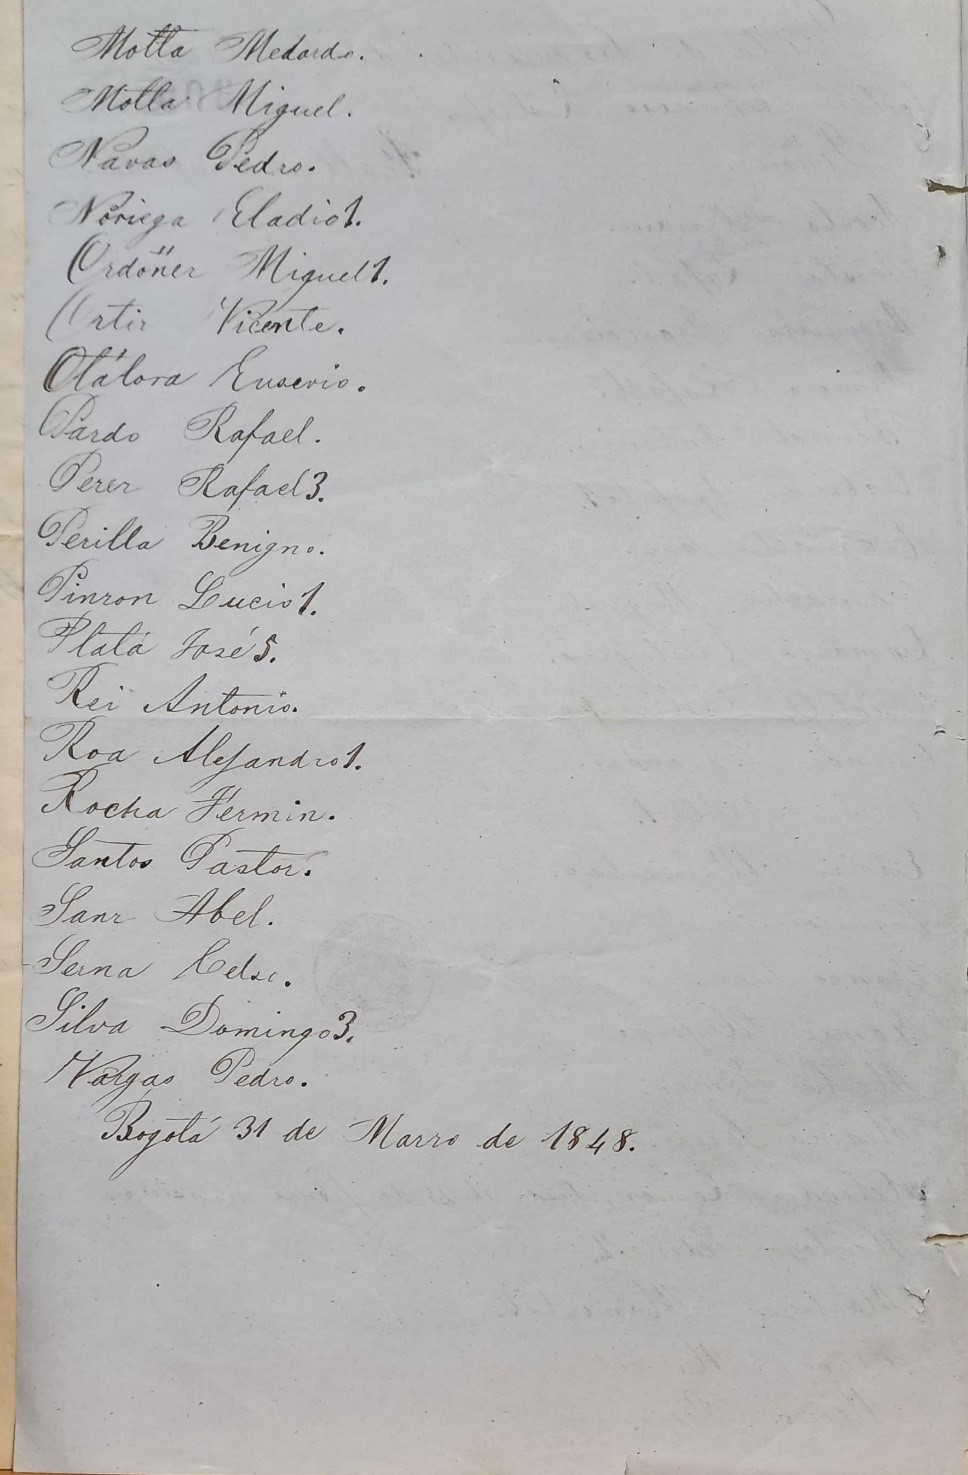 Motta Medardo.
Motta Miguel.
Navas Pedro.
Noriega Eladio 1.
Ordoñez Miguel 1.
Ortiz Vicente.
Otálora Eusevio.
Pardo Rafael.
Perez Rafael 3.
Perilla Benigno.
Pinzon Lucio 1.
Plata José 5.
Rei Antonio.
Roa Alejandro 1.
Rocha Fermin.
Santos Pastor.
Sanz Abel.
Serna Celso.
Silva Domingo 3.
Vargas Pedro.
Bogotá 31 de Marzo de 1848.